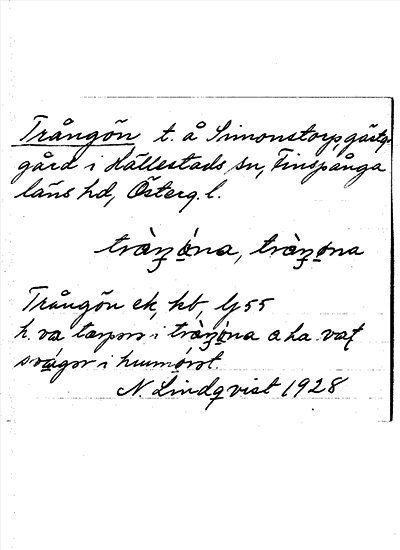 Trångön t. å Simonstorps gästg.
gård i Hällestads sn, Finspånga
läns hd, Österg. l.
tràŋǫ́na, tràŋǫna
Trångön ek, kb, G 55
h. va tærpərə i tràŋǫ́na a ha. vaʈ
svágər i humǿrət.
N. Lindqvist 1928